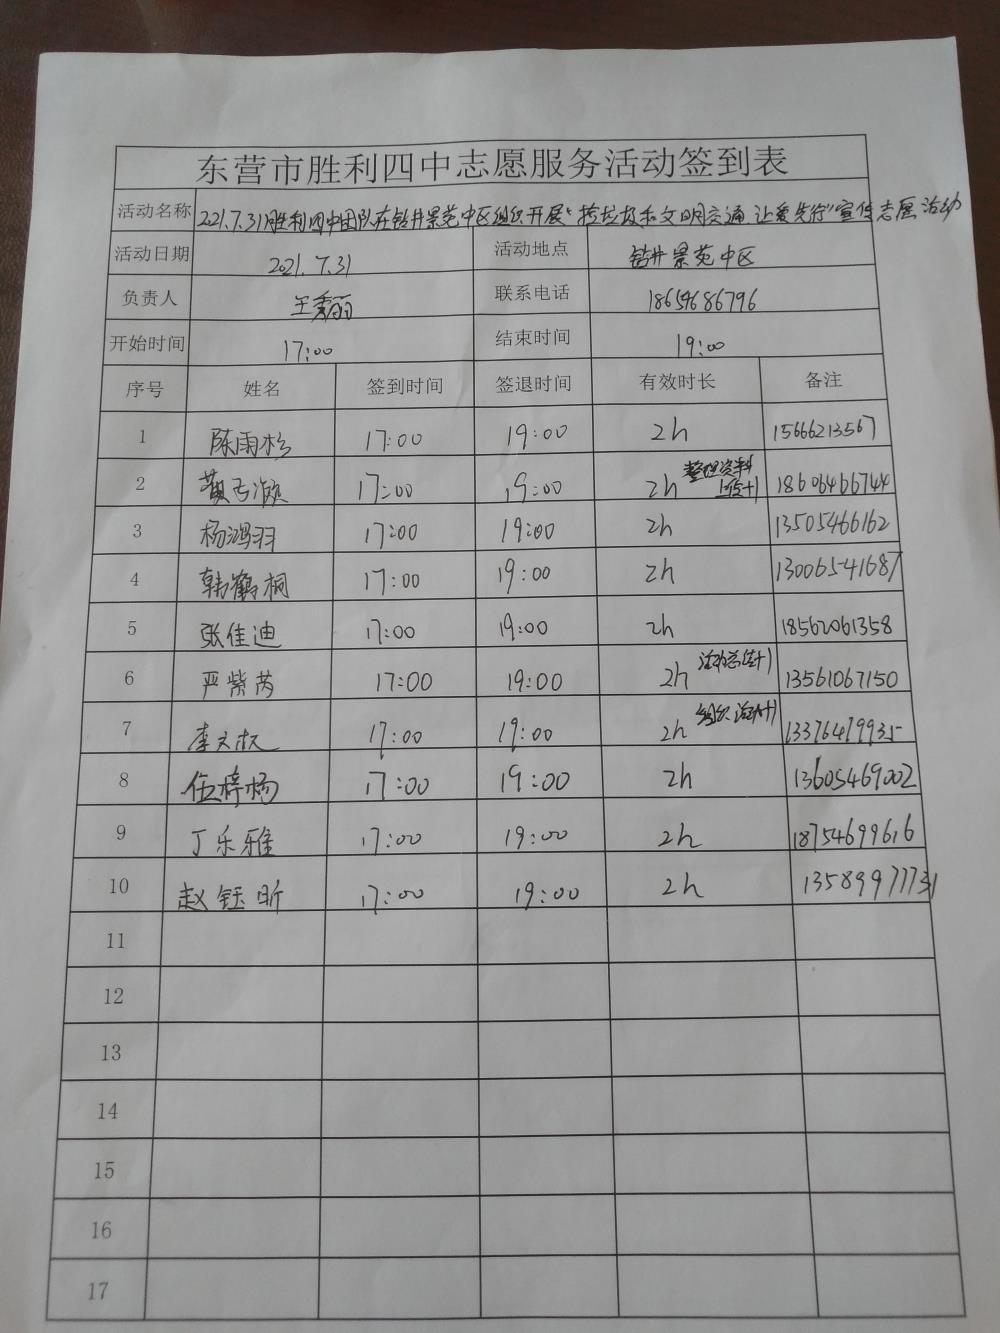 东营市胜利四中志愿服务活动签到表
活动名称 2021.7.31胜利四中团队在钻井景苑中区组织开展“捡垃圾和文明交通 让爱先行”宣传志愿活动
活动日期 2021.7.31 活动地点 钻井景苑中区
负责人 王秀丽 联系电话 18654686796
开始时间 17:00 结束时间 19:00
序号 姓名 签到时间 签退时间 有效时长 备注
1 陈雨杉 17:00 19:00 2h 15666213567
2 17:00 19:00 2h 整理资料 18606466744
3 杨鸿羽 17:00 19:00 2h 13505466162
4 韩鹤桐 17:00 19:00 2h 13006541687
5 张佳迪 17:00 19:00 2h 18562061358
6 严紫芮 17:00 19:00 2h 活动总结+1 13561067150
7 17:00 19:00 2h 组织活动+1 13376479935
8 伍梓杨 17:00 19:00 2h 13605469002
9 丁乐雅 17:00 19:00 2h 18754699616
10 赵钰昕 17:00 19:00 2h 13589977731
11
12
13
14
15
16
17